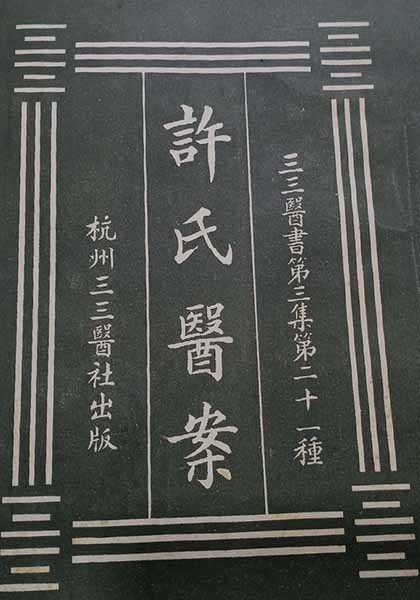 三三醫書第三集第二十一種
許氏醫案
杭州三三醫社出版